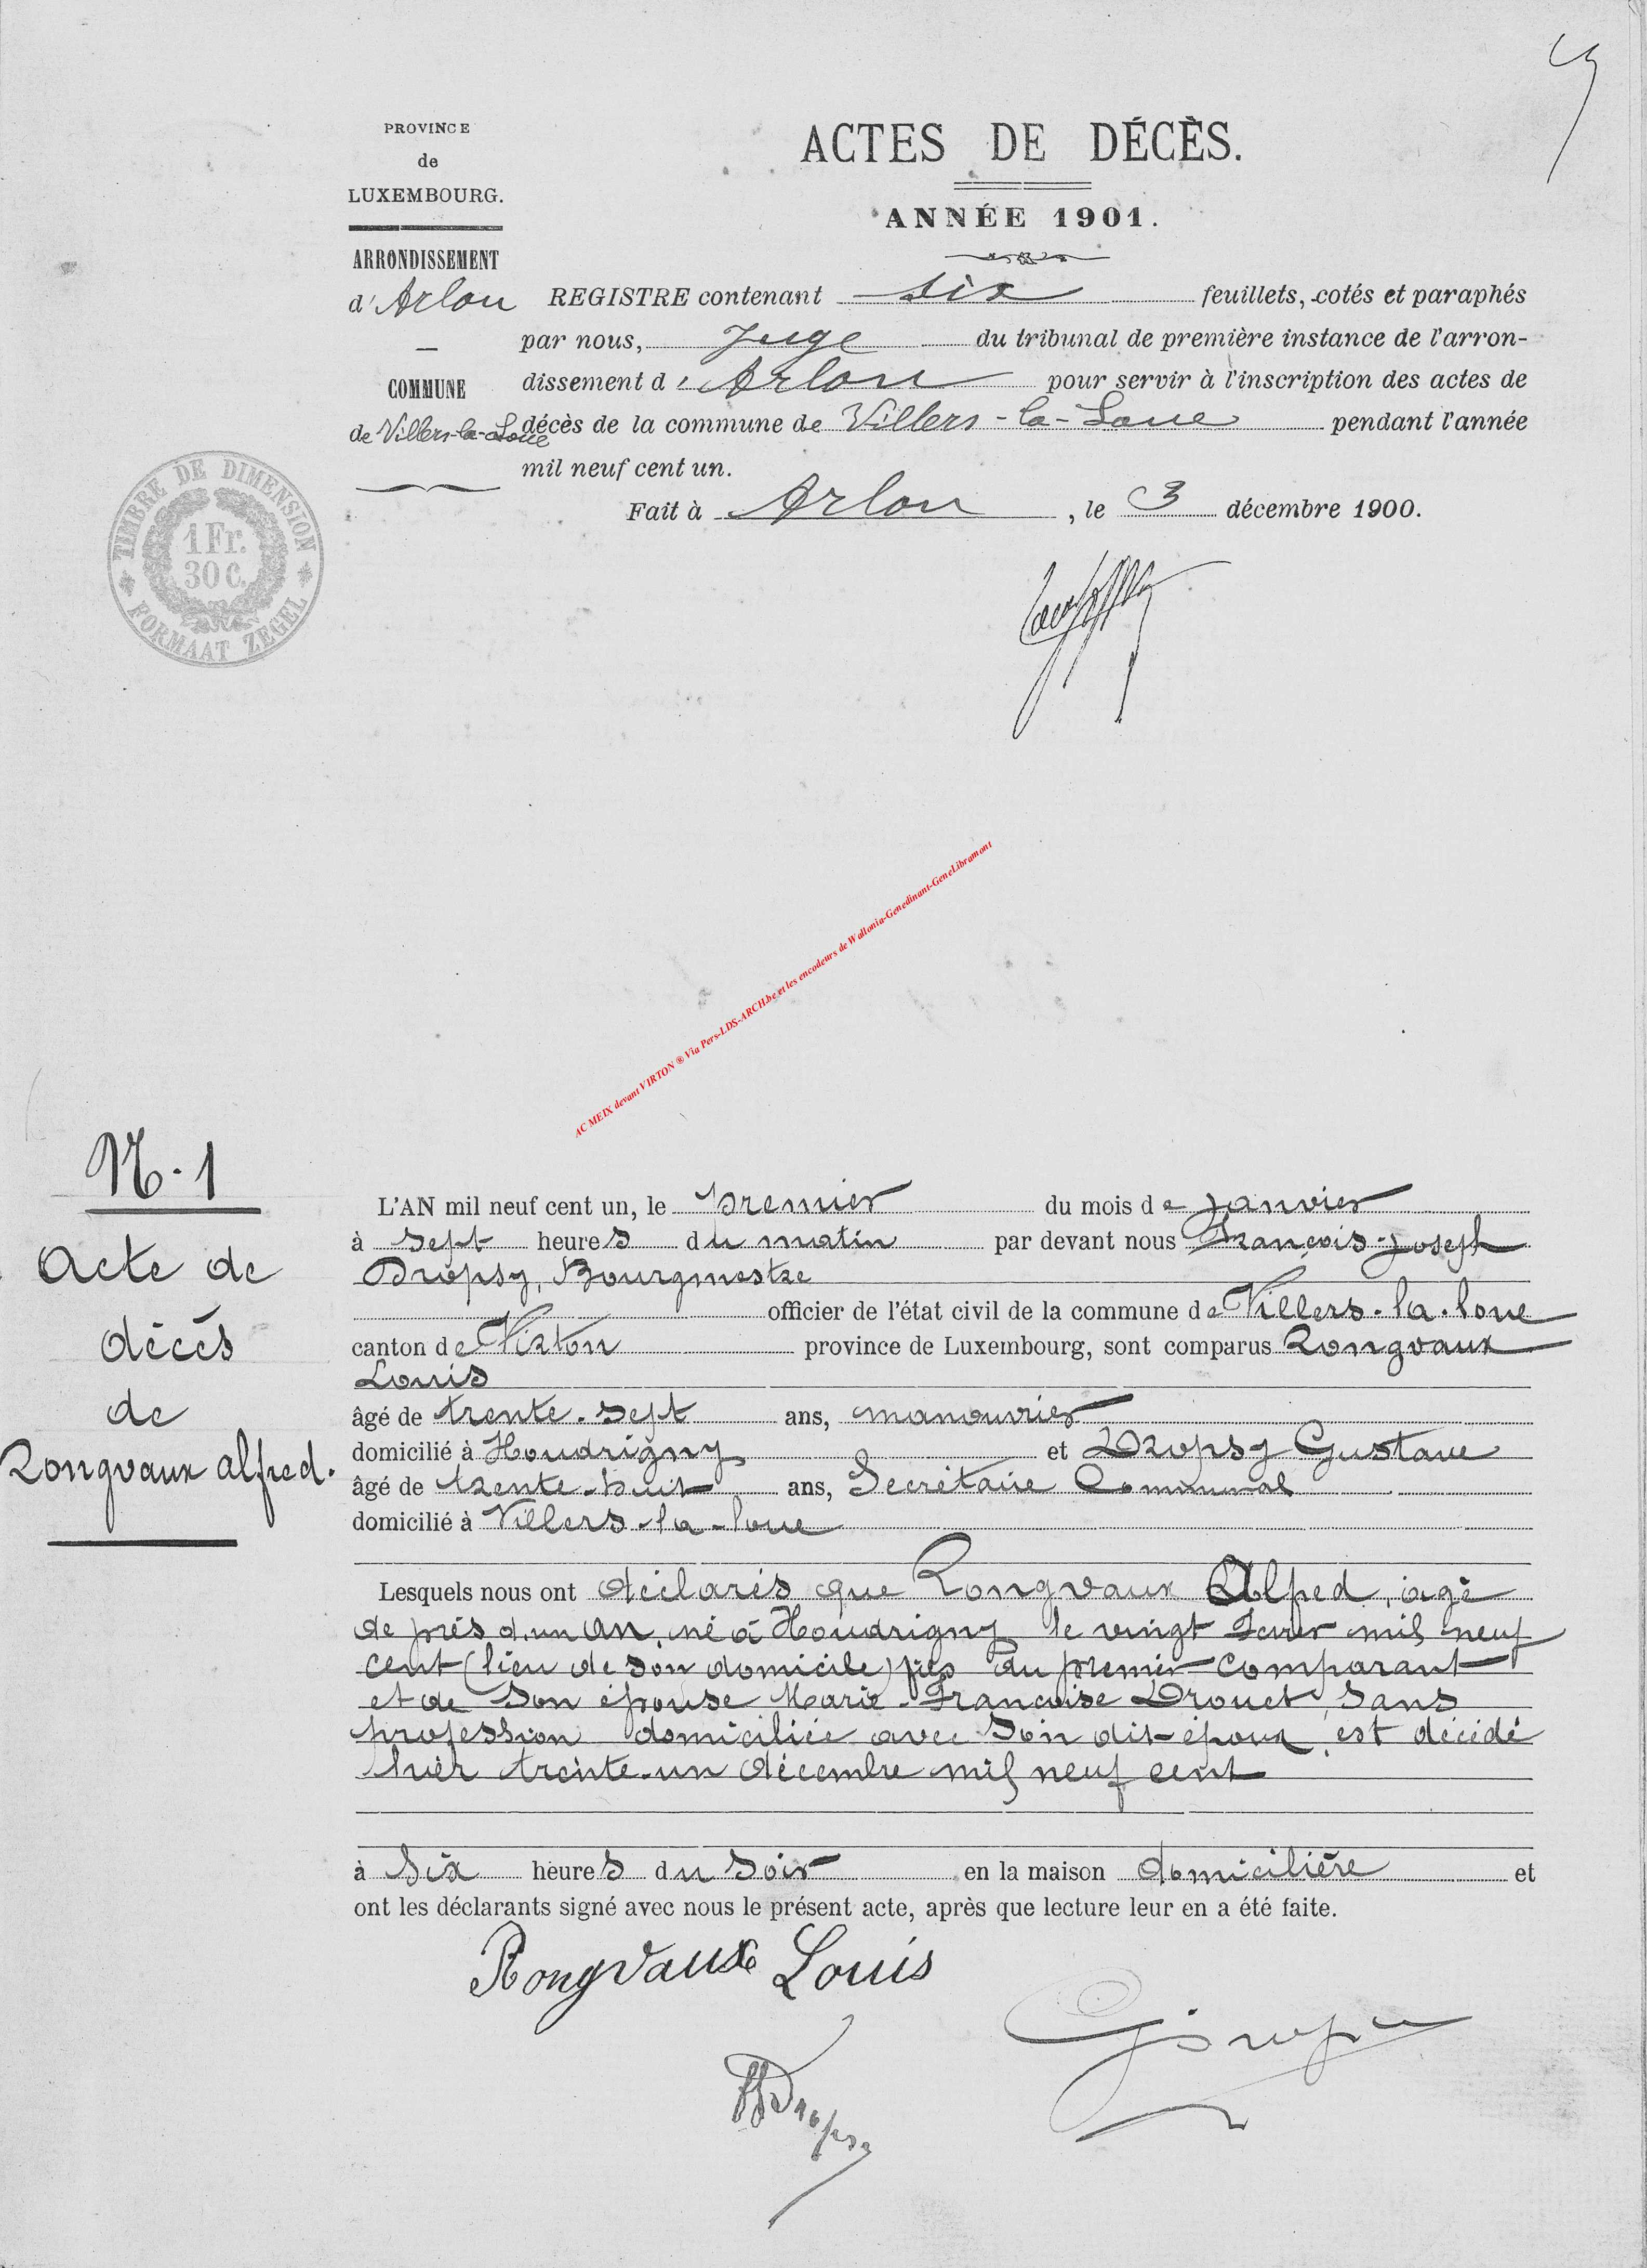 PROVINCE
de
LUXEMBOURG.
ARRONDISSEMENT
d'Arlon
COMMUNE
de Villers-la-Loue
TIMBRE DE DIMENSION
1 Fr.
30 C.
FORMAAT ZEGEL
ACTES DE DÉCÈS.
ANNÉE 1901.
REGISTRE contenant six feuillets, cotés et paraphés
par nous, Juge du tribunal de première instance de l'arron-
dissement d'Arlon pour servir à l'inscription des actes de
décès de la commune de Villers-la-Loue pendant l'année
mil neuf cent un.
Fait à Arlon, le 3 décembre 1900.
AC MEIX devant VIRTON ® Via Pers-LDS-ARCH.be et les encodeurs de Wallonia-Genedinant-GeneLibramont
N. 1
Acte de
décès
de
Rongvaux Alfred.
L'AN mil neuf cent un, le premier du mois de Janvier
à sept heures du matin par devant nous François-Joseph
Dropsy, Bourgmestre
officier de l'état civil de la commune de Villers-la-loue
canton de Virton province de Luxembourg, sont comparus Rongvaux
Louis
âgé de trente-sept ans, manouvrier
domicilié à Houdrigny et Dropsy Gustave
âgé de trente-huit ans, Secrétaire Communal
domicilié à Villers-la-loue
Lesquels nous ont déclarés que Rongvaux Alfred, âgé
de près d'un an, né à Houdrigny le vingt mil neuf
cent (lieu de son domicile) fils du premier comparant
et de son épouse Marie-Françoise Drouet, sans
profession domiciliée avec son dit époux, est décédé
hier trente-un décembre mil neuf cent
à six heures du soir en la maison domicilière et
ont les déclarants signé avec nous le présent acte, après que lecture leur en a été faite.
Rongvaux Louis
GDropsy
FJDropsy